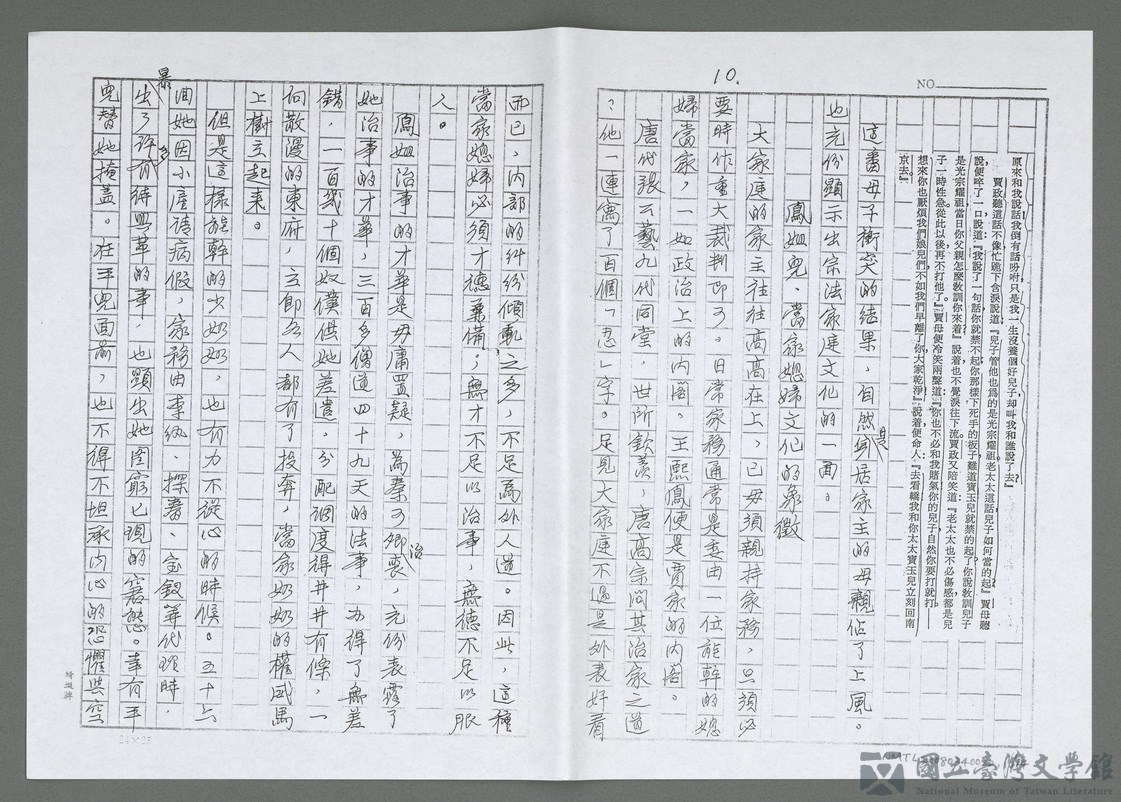 NO.
10.
原來和我說話我倒有話吩咐只是我一生沒養個好兒子却叫我和誰說了去?』
賈政聽道話不像忙跪下含淚說道『兒子管他也爲的是光宗耀祖老太太這話兒子如何當的起』賈母聽
說便啐了一口說道『我說了一句話你就禁不起你那樣下死手的板子難道寶玉兒就禁的起了你說敎訓兒子
是光宗耀祖當日你父親怎麼敎訓你來着』說着也不覺淚往下流。賈政又陪笑道『老太太也不必傷感都是兒
子一時性急從此以後再不打他了』賈母便冷笑兩聲道『你也不必和我賭氣你的兒子自然你要打就打——
想來你也厭煩我們娘兒們不如我們早離了你大家乾淨』說着便命人『去看轎我和你太太寶玉兒立刻回南
京去』
這番母子衝突的結果，自然是居家主的母親佔了上風。
也充份顯示出宗法家庭文化的一面。
鳳姐兒、當家媳婦文化的象徵
大家庭的家主往往高高在上，已毋須親持家務，只須必
要時作重大裁判即可。日常家務通常是委由一位能幹的媳
婦當家，一如政治上的內閣。王熙鳳便是賈家的內閣。
唐代張公藝九代同堂，世所欽羨，唐高宗問其治家之道
？他一連寫了百個「忍」字。足見大家庭不過是外表好看
而已，內部的糾紛傾軋之多，不足為外人道。因此，這種
當家媳婦必須才德兼備；無才不足以治事，無德不足以服
人。
鳳姐治事的才華是毋庸置疑，為秦可卿治喪，充份表露了
她治事的才華，三百多僧道四十九天的法事，办得了無差
錯，一百幾十個奴僕供她差遣，分配調度得井井有條，一
向散漫的東府，立即各人都有了投奔，當家奶奶的權威馬
上樹立起來。
但是這樣能幹的少奶奶，也有力不從心的時候。五十六
回她因小產請病假，家務由李紈、探春、寶釵等代理時，
暴出了許多有待興革的事，也顯出她圖窮匕現的窘態。幸有平
兒替她掩蓋。在平兒面前，也不得不坦承內心的恐懼與空
綺進牌
24×25
國立臺灣文學館
National Museum of Taiwan Literature